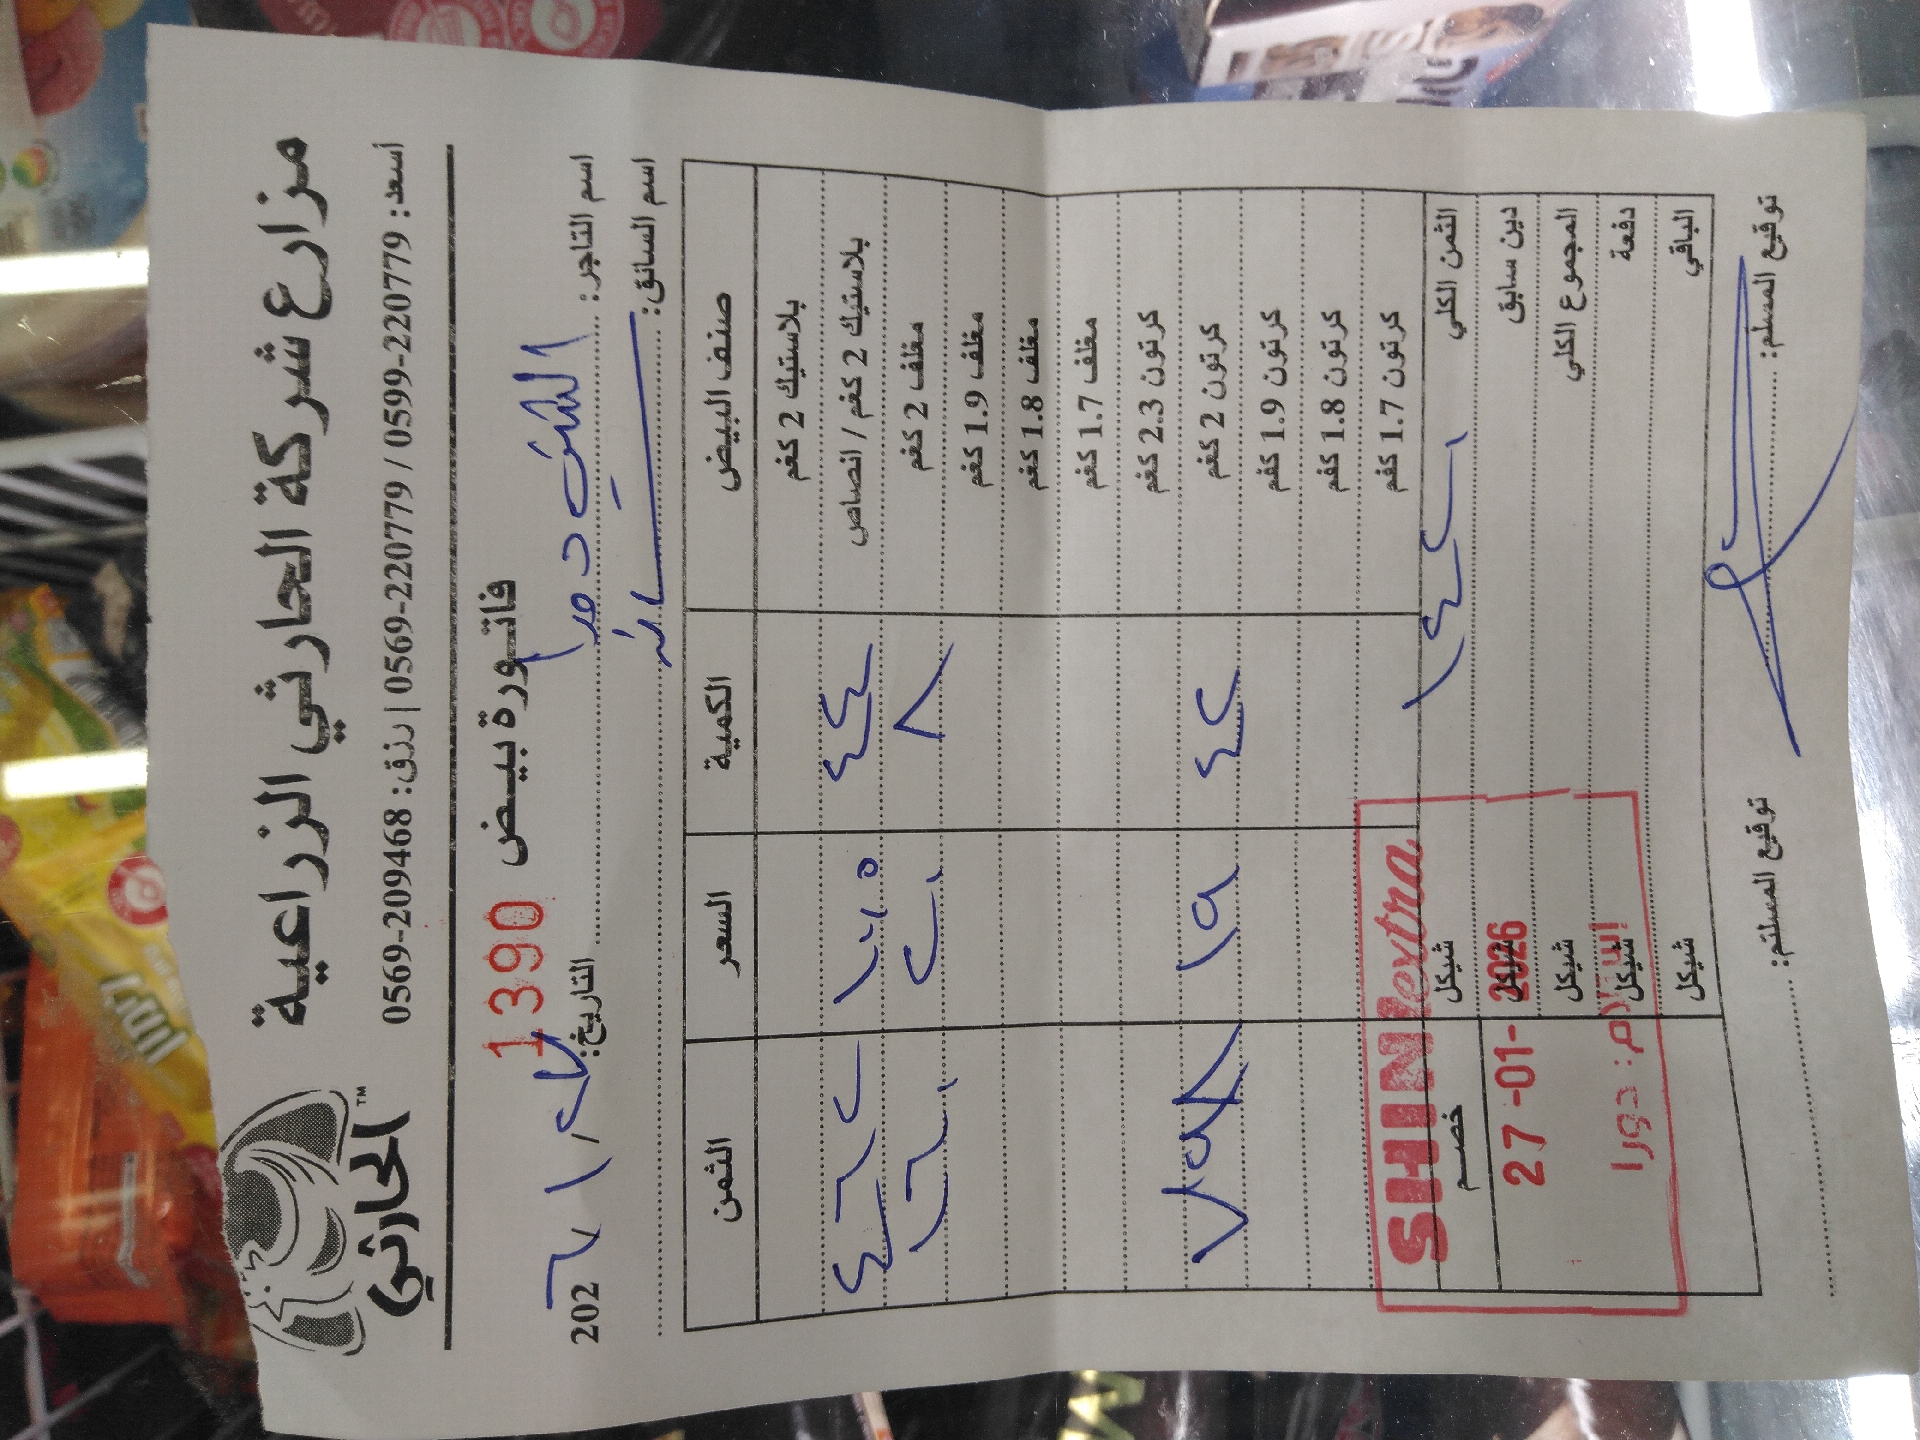 الحارثي
مزارع شركة الحارثي الزراعية
أسعد: 0599-220779 / 0569-220779 | رزق: 0569-209468
فاتورة بيض 1390
اسم التاجر: الشني دورا التاريخ: ٢٧ / ١ / ٢٠٢٦
اسم السائق:
صنف البيض الكمية السعر الثمن
بلاستيك 2 كغم
بلاستيك 2 كغم / انصاص ٤٤ ١٠,٥ ٤٦٢
مغلف 2 كغم ٨ ٢٠ ١٦٠
مغلف 1.9 كغم
مغلف 1.8 كغم
مغلف 1.7 كغم
كرتون 2.3 كغم
كرتون 2 كغم ٤٢ ١٩ ٧٩٨
كرتون 1.9 كغم
كرتون 1.8 كغم
كرتون 1.7 كغم
الثمن الكلي ١٤٢٠ شيكل خصم
دين سابق شيكل
المجموع الكلي شيكل
دفعة شيكل
الباقي شيكل
SHINI extra
27 -01- 2026
استلام: دورا
توقيع المسلم: توقيع المستلم: